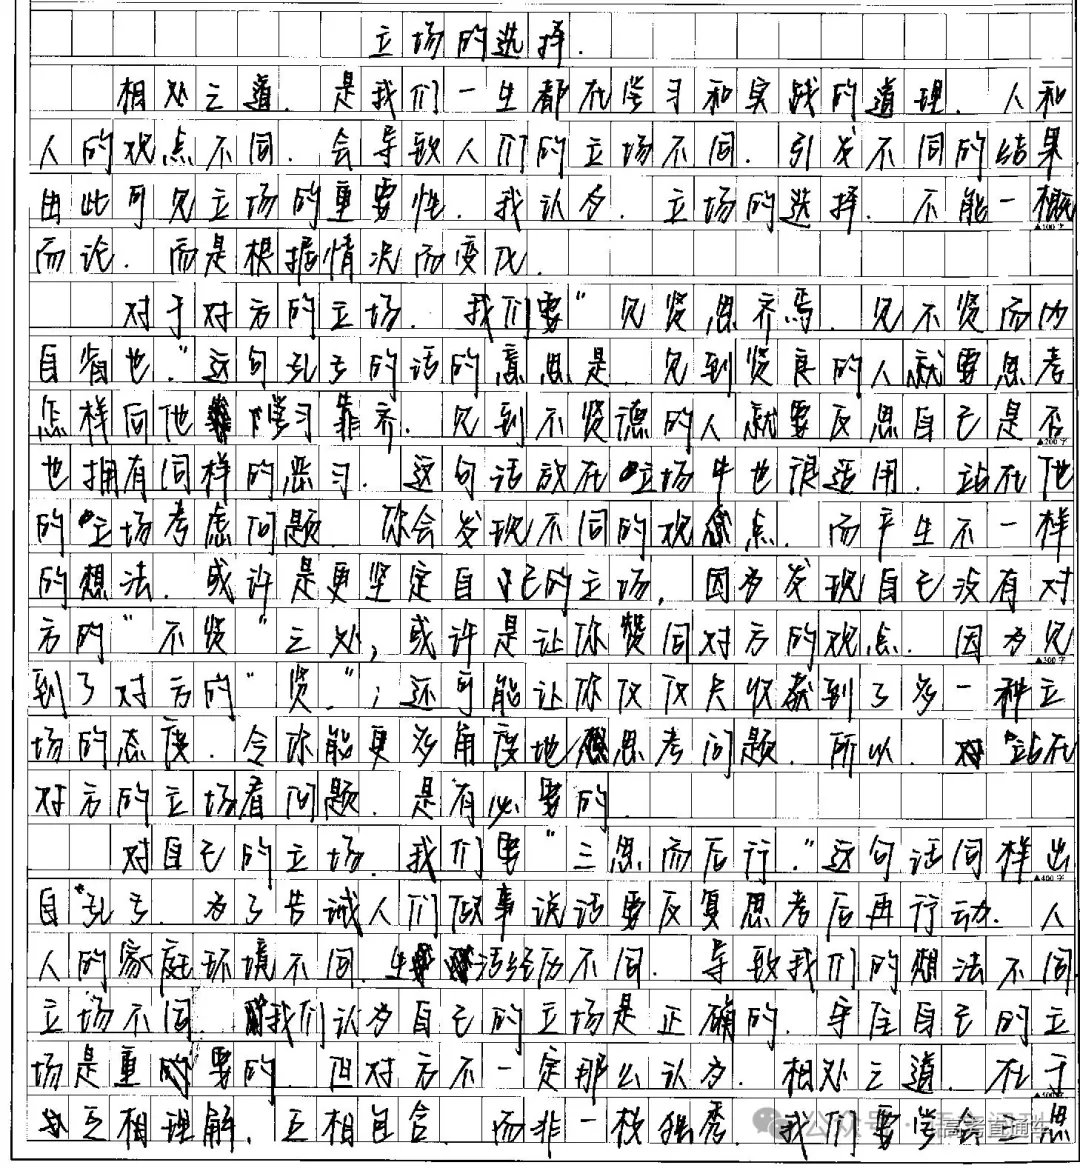 立场的选择.
相处之道.是我们一生都在学习和实践的道理.人和
人的观点不同.会导致人们的立场不同.引发不同的结果
由此可见立场的重要性.我认为.立场的选择.不能一概
▲100字
而论.而是根据情况而变化.
对于对方的立场.我们要“见贤思齐焉.见不贤而内
自省也.”这句孔子的话的意思是.见到贤良的人就要思考
怎样向他学习靠齐.见到不贤德的人就要反思自己是否
▲200字
也拥有同样的恶习.这句话放在立场中也很适用.站在他
的立场考虑问题.你会发现不同的观点.而产生不一样
的想法.或许是更坚定自己的立场,因为发现自己没有对
方的“不贤”之处;或许是让你赞同对方的观点.因为见
▲300字
到了对方的“贤”;还可能让你仅仅只收获到了多一种立
场的态度.令你能更多角度地思考问题.所以.站在
对方的立场看问题.是有必要的.
对自己的立场.我们要“三思而后行.”这句话同样出
▲400字
自孔子.为了告诫人们做事说话要反复思考后再行动.人
人的家庭环境不同.生活经历不同.导致我们的想法不同
立场不同.我们认为自己的立场是正确的.守住自己的立
场是重要的.但对方不一定那么认为.相处之道.在于
▲500字
互相理解.互相包含.而非一枝独秀.我们要学会三思
公众号·高考直通车